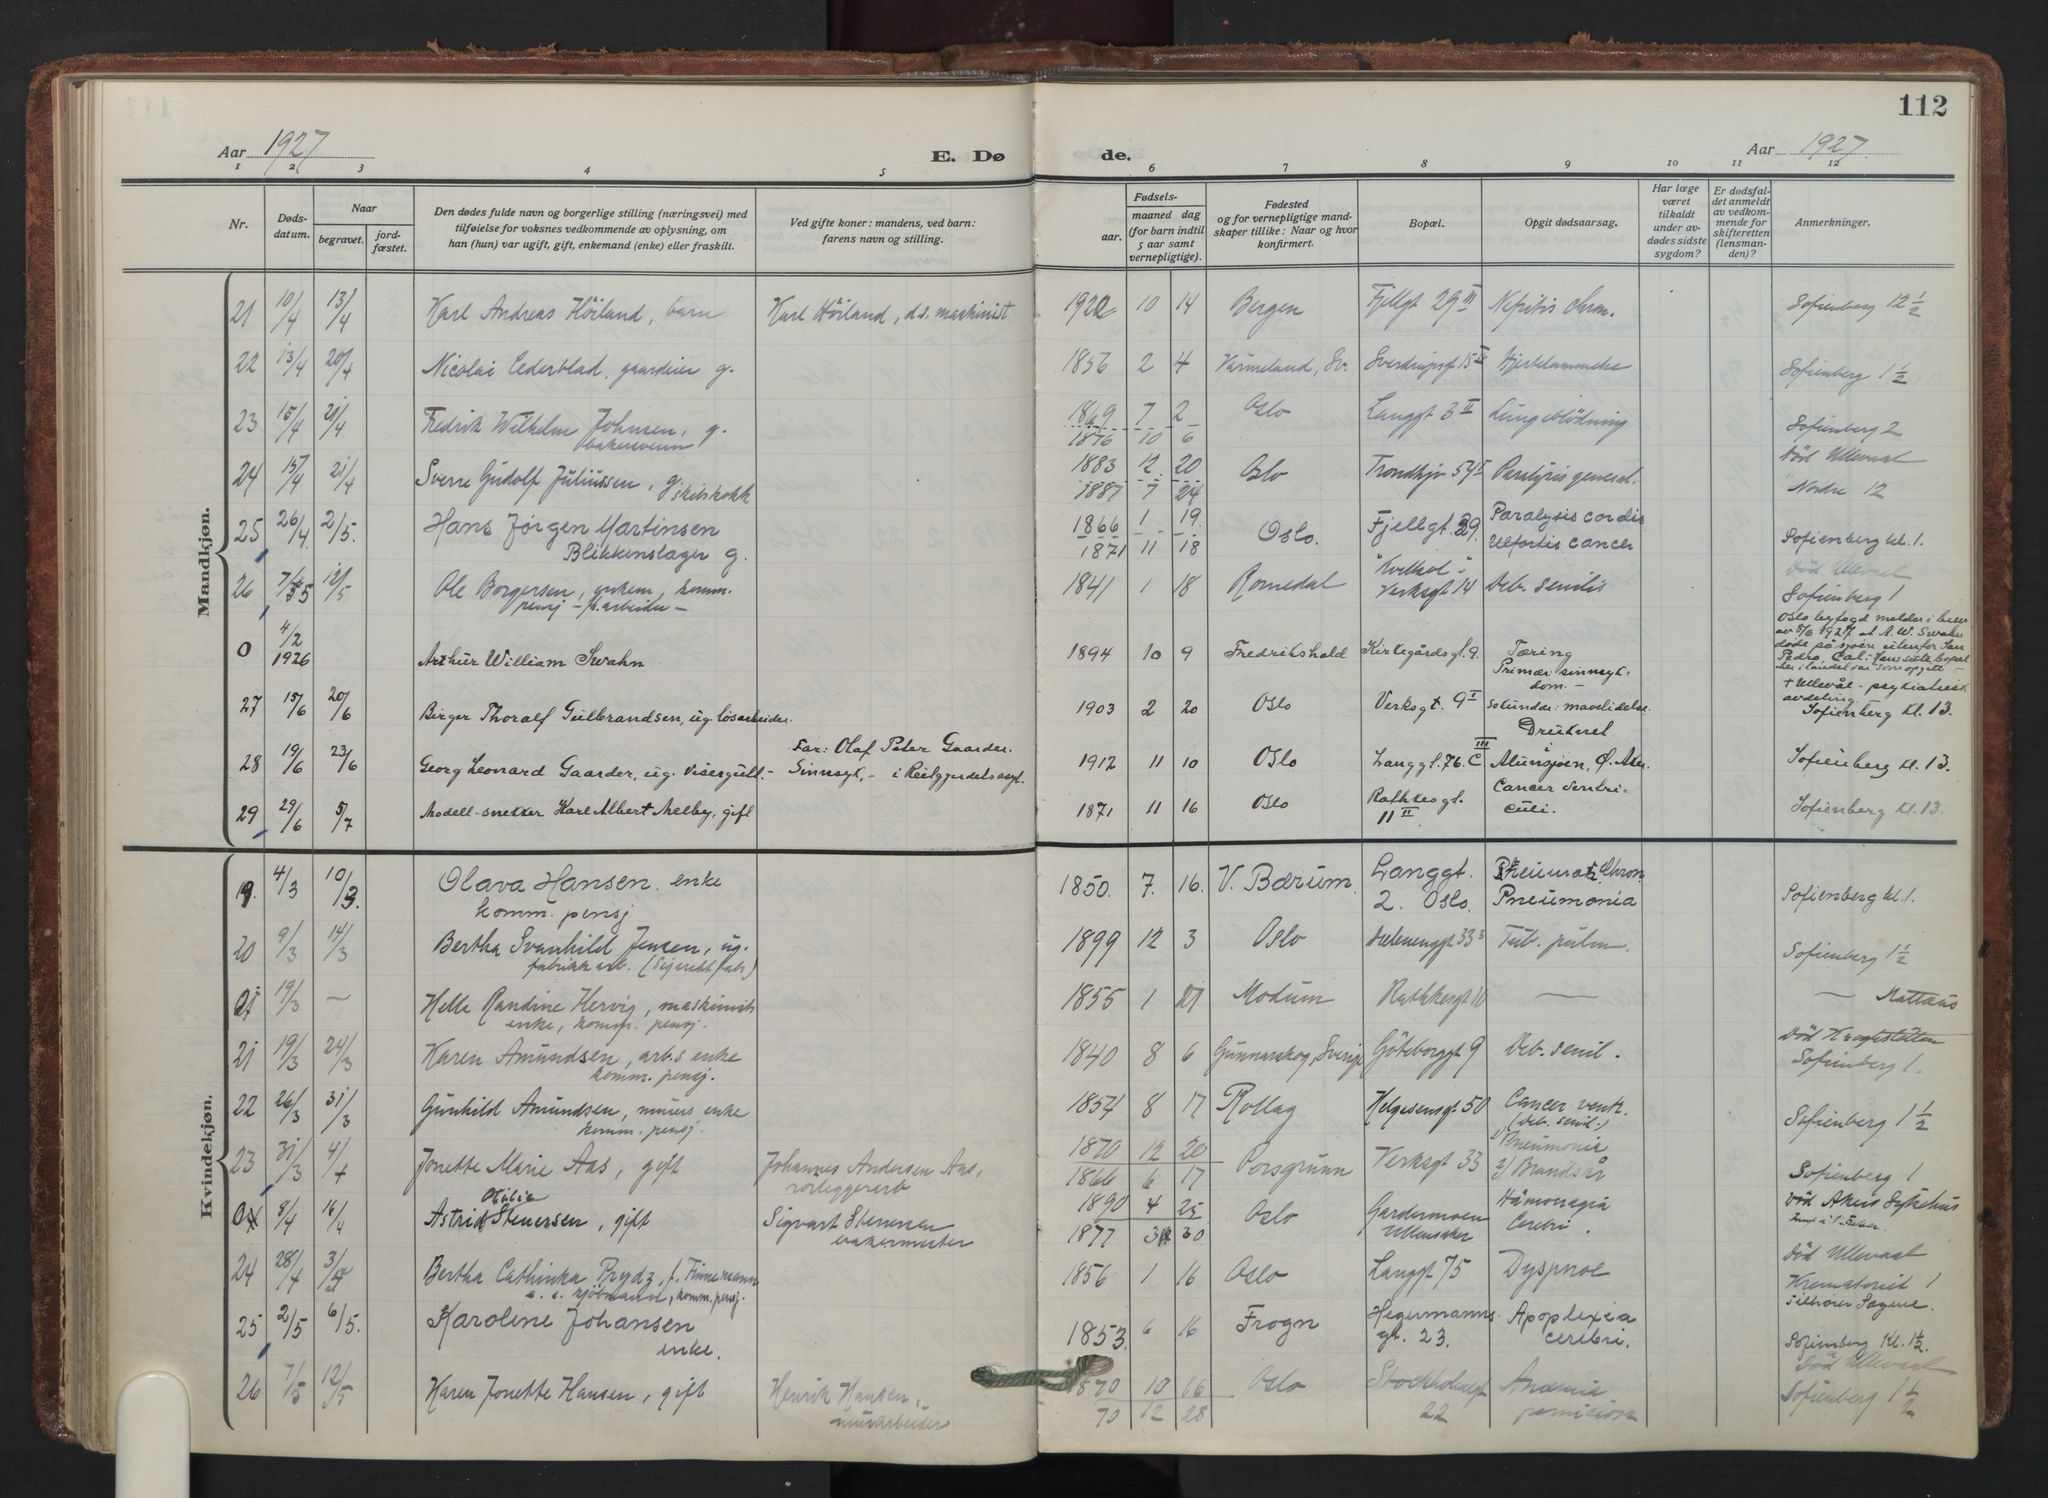 112
Aar 1927
E. Dø
de.
Aar 1927
1 2 3 4 5 6 7 8 9 10 11 12
Nr.
Døds-
datum.
Naar
begravet.
jord-
fæstet.
Den dødes fulde navn og borgerlige stilling (næringsvei) med
tilføielse for voksnes vedkommende av oplysning, om
han (hun) var ugift, gift, enkemand (enke) eller fraskilt.
Ved gifte koner: mandens, ved barn:
farens navn og stilling.
Fødsels-
aar.
maaned dag
(for barn indtil
5 aar samt
vernepligtige).
Fødested
og for vernepligtige mand-
skaper tillike: Naar og hvor
konfirmert.
Bopæl.
Opgit dødsaarsag.
Har læge
været
tilkaldt
under av-
dødes sidste
sygdom?
Er dødsfal-
det anmeldt
av vedkom-
mende for
skifteretten
(lensman-
den)?
Anmerkninger.
Mandkjøn.
21 10/4 13/4 Karl Andreas Höiland, barn Karl Höiland, d.s. maskinist 1920 10 14 Bergen Fjellgt 29 III Nefritis chron. Sofienberg 12 ½
22 13/4 20/4 Nicolai Cederblad, gaardeier g. 1856 2 4 Värmeland, Sv. Sverdrupsgt 15 II Hjertelammelse Sofienberg 1 ½
23 15/4 21/4 Fredrik Wilhelm Johnsen, g. 1869 7 2 Oslo Langgt 3 II Lungeblödning
bakersvenn 1876 10 6 Sofienberg 2
24 15/4 21/4 Sverre Gudolf Juliussen, g. skibskokk 1883 12 20 Oslo Trondhjv 57 I Paralysis general. Död Ullevaal
1887 7 24 Nordre 12
25 26/4 2/5. Hans Jørgen Martinsen 1866 1 19. Oslo. Fjellgt. 29. Paralysis cordis
Blikkenslager g. 1871 11 18 cancer Sofienberg kl. 1.
26 7/5 12/5 Ole Borgersen, enkem, komm. 1841 1 18 Romedal Verksgt 14 Deb. senilis Död Ullevaal
pensj - f. arbeider - Sofienberg 1
0 4/2 1926 Arthur William Swahn 1894 10 9 Fredrikshald Kirkegårdsgt. 9. Tæring Oslo byfogd melder i brev
av 8/6 1927 at A.W. Swahn
døde på sjøen utenfor San
Pedro, Cal. Hans siste bopæl
her i landet var som opgitt -
27 15/6 20/6 Birger Thoralf Gulbrandsen, ug. løsarbeider. 1903 2 20 Oslo Verksgt. 9 I Primær: sinnsyk-
dom. -
sekundær: mavelidelse.
† Ullevål - psykiatrisk
avdeling
Sofienberg kl. 13.
28 19/6 23/6 Georg Leonard Gaarder, ug. Visergutt. - Far: Olaf Peter Gaarder.
Sinnsyk, - i 1912 11 10 Oslo Langgt. 76. C III Druknet
i
Alunsjøen, Ø. Aker Sofienberg kl. 13.
29 29/6 5/7 Modell-snekker Karl Albert Melby, gift 1871 11 16 Oslo Rathkesgt.
11 II Cancer ventri-
culi. Sofienberg kl. 13.
Kvindekjøn.
19. 4/3 10/3. Olava Hansen enke 1850. 7. 16. V. Bærum. Langgt.
2. Oslo. Chron.
Pneumonia Sofienberg kl. 1.
komm. pensj
20 9/3 14/3 Bertha Svanhild Jensen, ug. 1899 12 3 Oslo Helenenggt 33 3 Tub. pulm. Sofienberg 1 ½
fabrikkarb. (Sigarettfabr)
0 19/3 — Helle Randine Hervig, maskinists 1855 1 27 Modum Rathkesgt 10 — — Mattæus
enke, komm. pensj.
21 19/3 24/3 Karen Amundsen, arb.s enke 1840 8 6 Gunnarskog, Sverige Göteborggt 9 Deb. senil. Död
komm. pensj. Sofienberg 1.
22 26/3 31/3 Gunhild Amundsen, murers enke 1854 8 17 Rollag Helgesensgt 50 Cancer ventr. Sofienberg 1 ½
komm. pensj. (deb. senil.)
23 31/3 4/4 Jonette Marie Aas, gift Johannes Andersen Aas, 1870 12 20 Porsgrunn Verksgt 33 1) Pneumonia
rörleggerarb 1866 6 17 2) Brandsår Sofienberg 1
0 8/4 16/4 Astrid Otilie Stenersen, gift Sigvart Stenersen 1890 4 25 Oslo Gardermoen Hämoragia Död Akers Sykehus
bakermester 1877 3 30 Ullensaker Cerebri.
24 28/4 3/5 Bertha Cathinka Prydz, f. Finnemann 1856 1 16 Oslo Langgt 75 Dyspnoe Död Ullevaal
e. e. kjöbmann, komm. pensj. Krematoriet 1
tilhörer Sagene.
25 2/5 6/5. Karoline Johansen 1853. 6 16 Frogn Hegermanns
gt. 23. Apoplexia
cerebri. Sofienberg kl. 1½.
enke.
26 7/5 12/5 Karen Jonette Hansen, gift Henrik Hansen, 1870 10 16 Oslo Stockholmgt Anæmia Död Ullevaal
murarbeider 70 12 28 22 perniciosa Sofienberg 1 ½